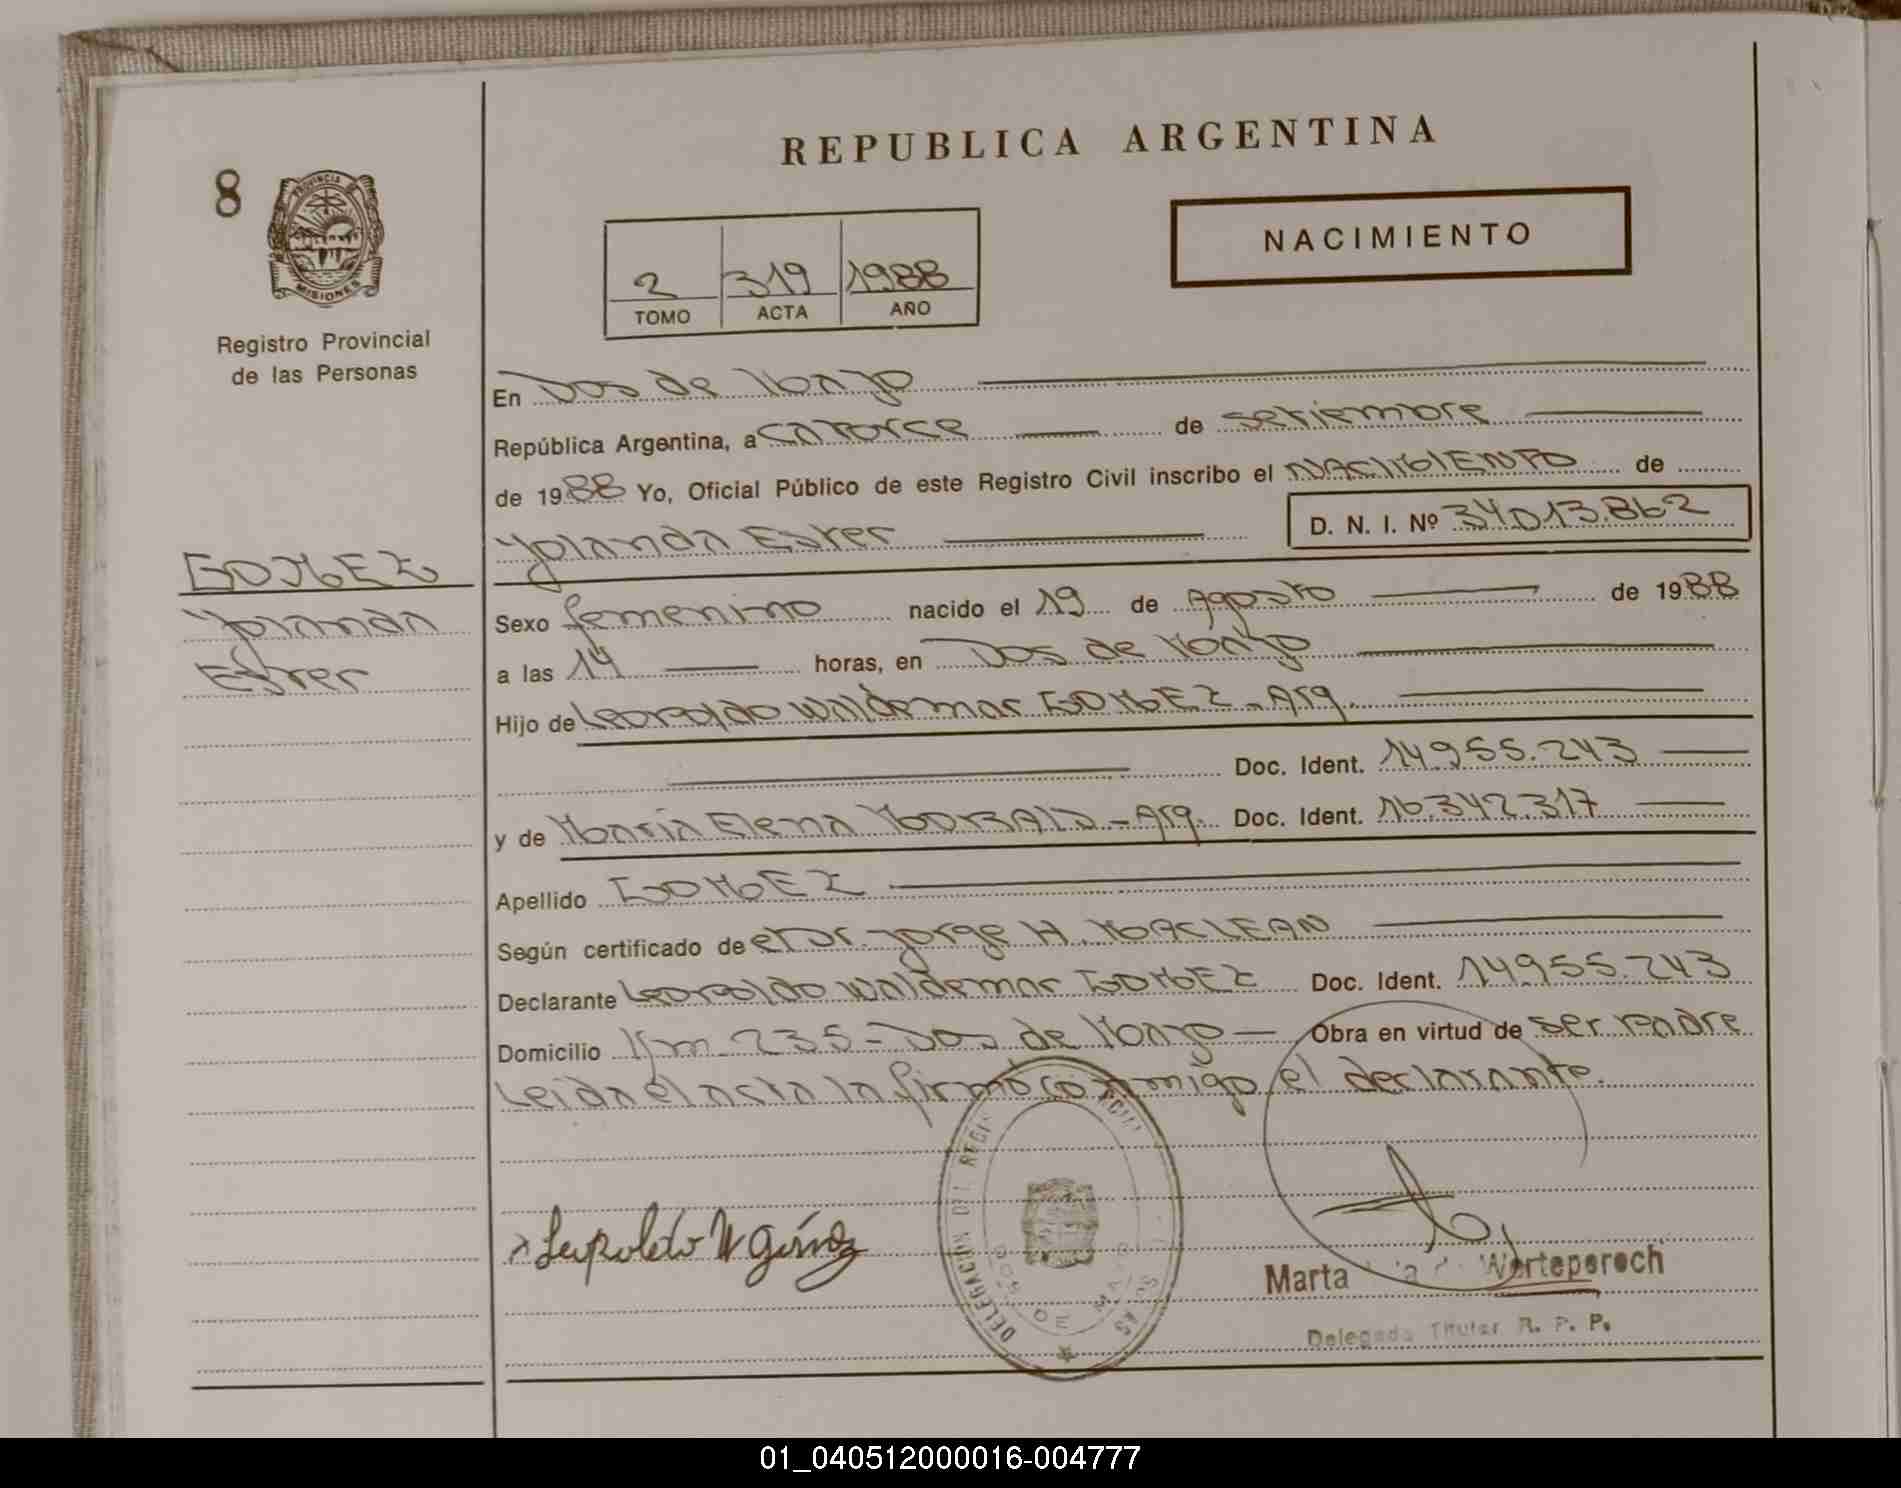 REPUBLICA ARGENTINA
8
PROVINCIA DE
MISIONES
Registro Provincial
de las Personas
NACIMIENTO
2 319 1988
TOMO ACTA AÑO
En Dos de Mayo
República Argentina, a catorce de setiembre
de 1988 Yo, Oficial Público de este Registro Civil inscribo el NACIMIENTO de
Yolanda Ester D. N. I. Nº 34013.862
GOMEZ
Yolanda
Ester
Sexo femenino nacido el 19 de Agosto de 1988
a las 14 horas, en Dos de Mayo
Hijo de Leopoldo Waldemar GOMEZ - Arg.
Doc. Ident. 14.955.243
y de Maria Elena - Arg. Doc. Ident. 16.342.317
Apellido GOMEZ
Según certificado de el Dr. Jorge H. MACLEAN
Declarante Leopoldo Waldemar GOMEZ Doc. Ident. 14.955.243
Domicilio Km. 235 - Dos de Mayo Obra en virtud de ser padre
Leida el acta la firmó conmigo el declarante.
Leopoldo W Gómez
DELEGACION DEL
DOS DE MAYO
Marta Werteperoch
Delegada Titular R. P. P.
01_040512000016-004777